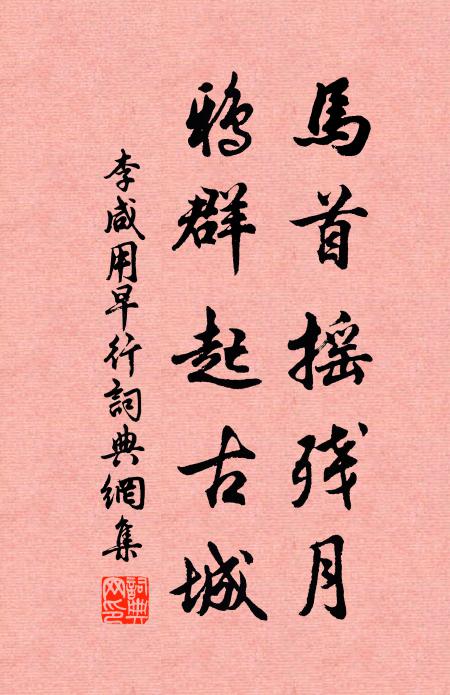 馬首摇残月
鴉群起古城
李咸用早行詞典網集
詞典網印